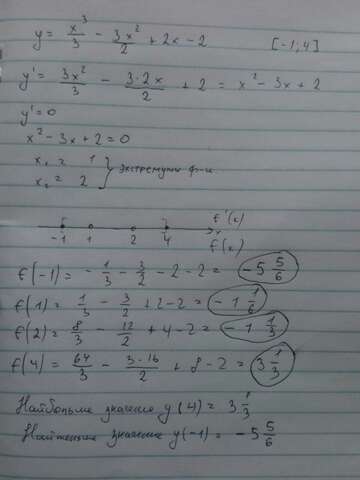 y = x³/3 - 3x²/2 + 2x - 2 [-1; 4]
y' = 3x²/3 - 3·2x/2 + 2 = x² - 3x + 2
y' = 0
x² - 3x + 2 = 0
x₁ = 1
x₂ = 2 } экстремумы ф-и
f'(x)
-1 1 2 4 f(x)
f(-1) = -1/3 - 3/2 - 2 - 2 = -5 5/6
f(1) = 1/3 - 3/2 + 2 - 2 = -1 1/6
f(2) = 8/3 - 12/2 + 4 - 2 = -1 1/3
f(4) = 64/3 - 3·16/2 + 8 - 2 = 3 1/3
Наибольше значение y(4) = 3 1/3
Найменьше значение y(-1) = -5 5/6